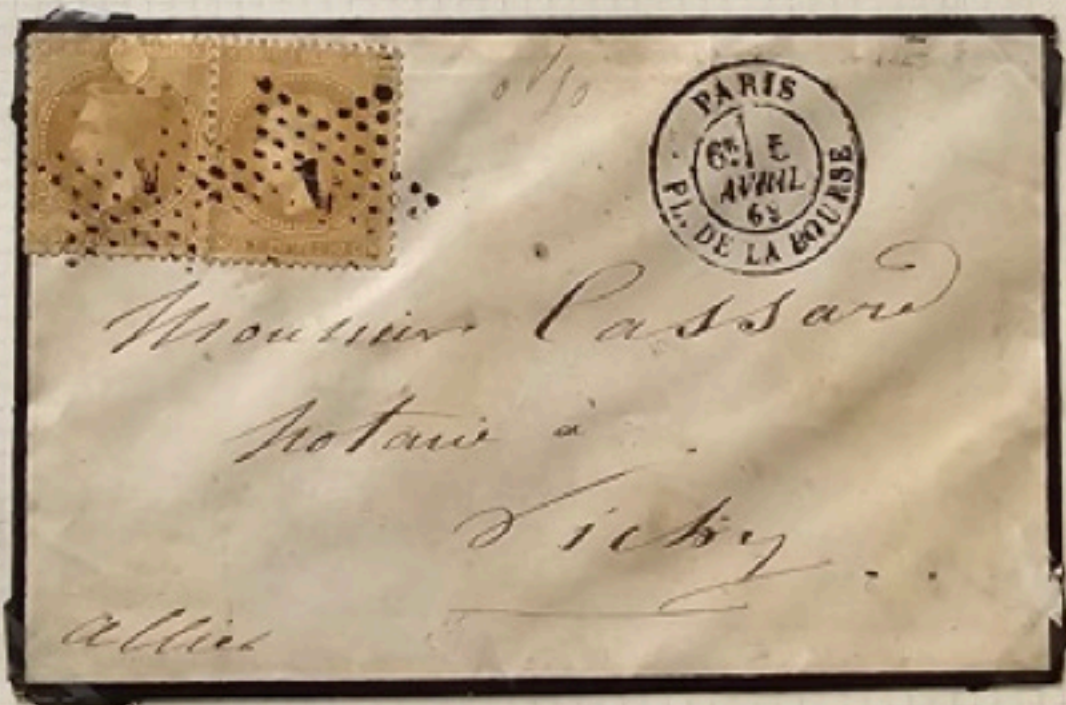 PARIS
6E 5
AVRIL
68
PL. DE LA BOURSE
1
1
Monsieur Cassard
notaire à
Vichy
Allier